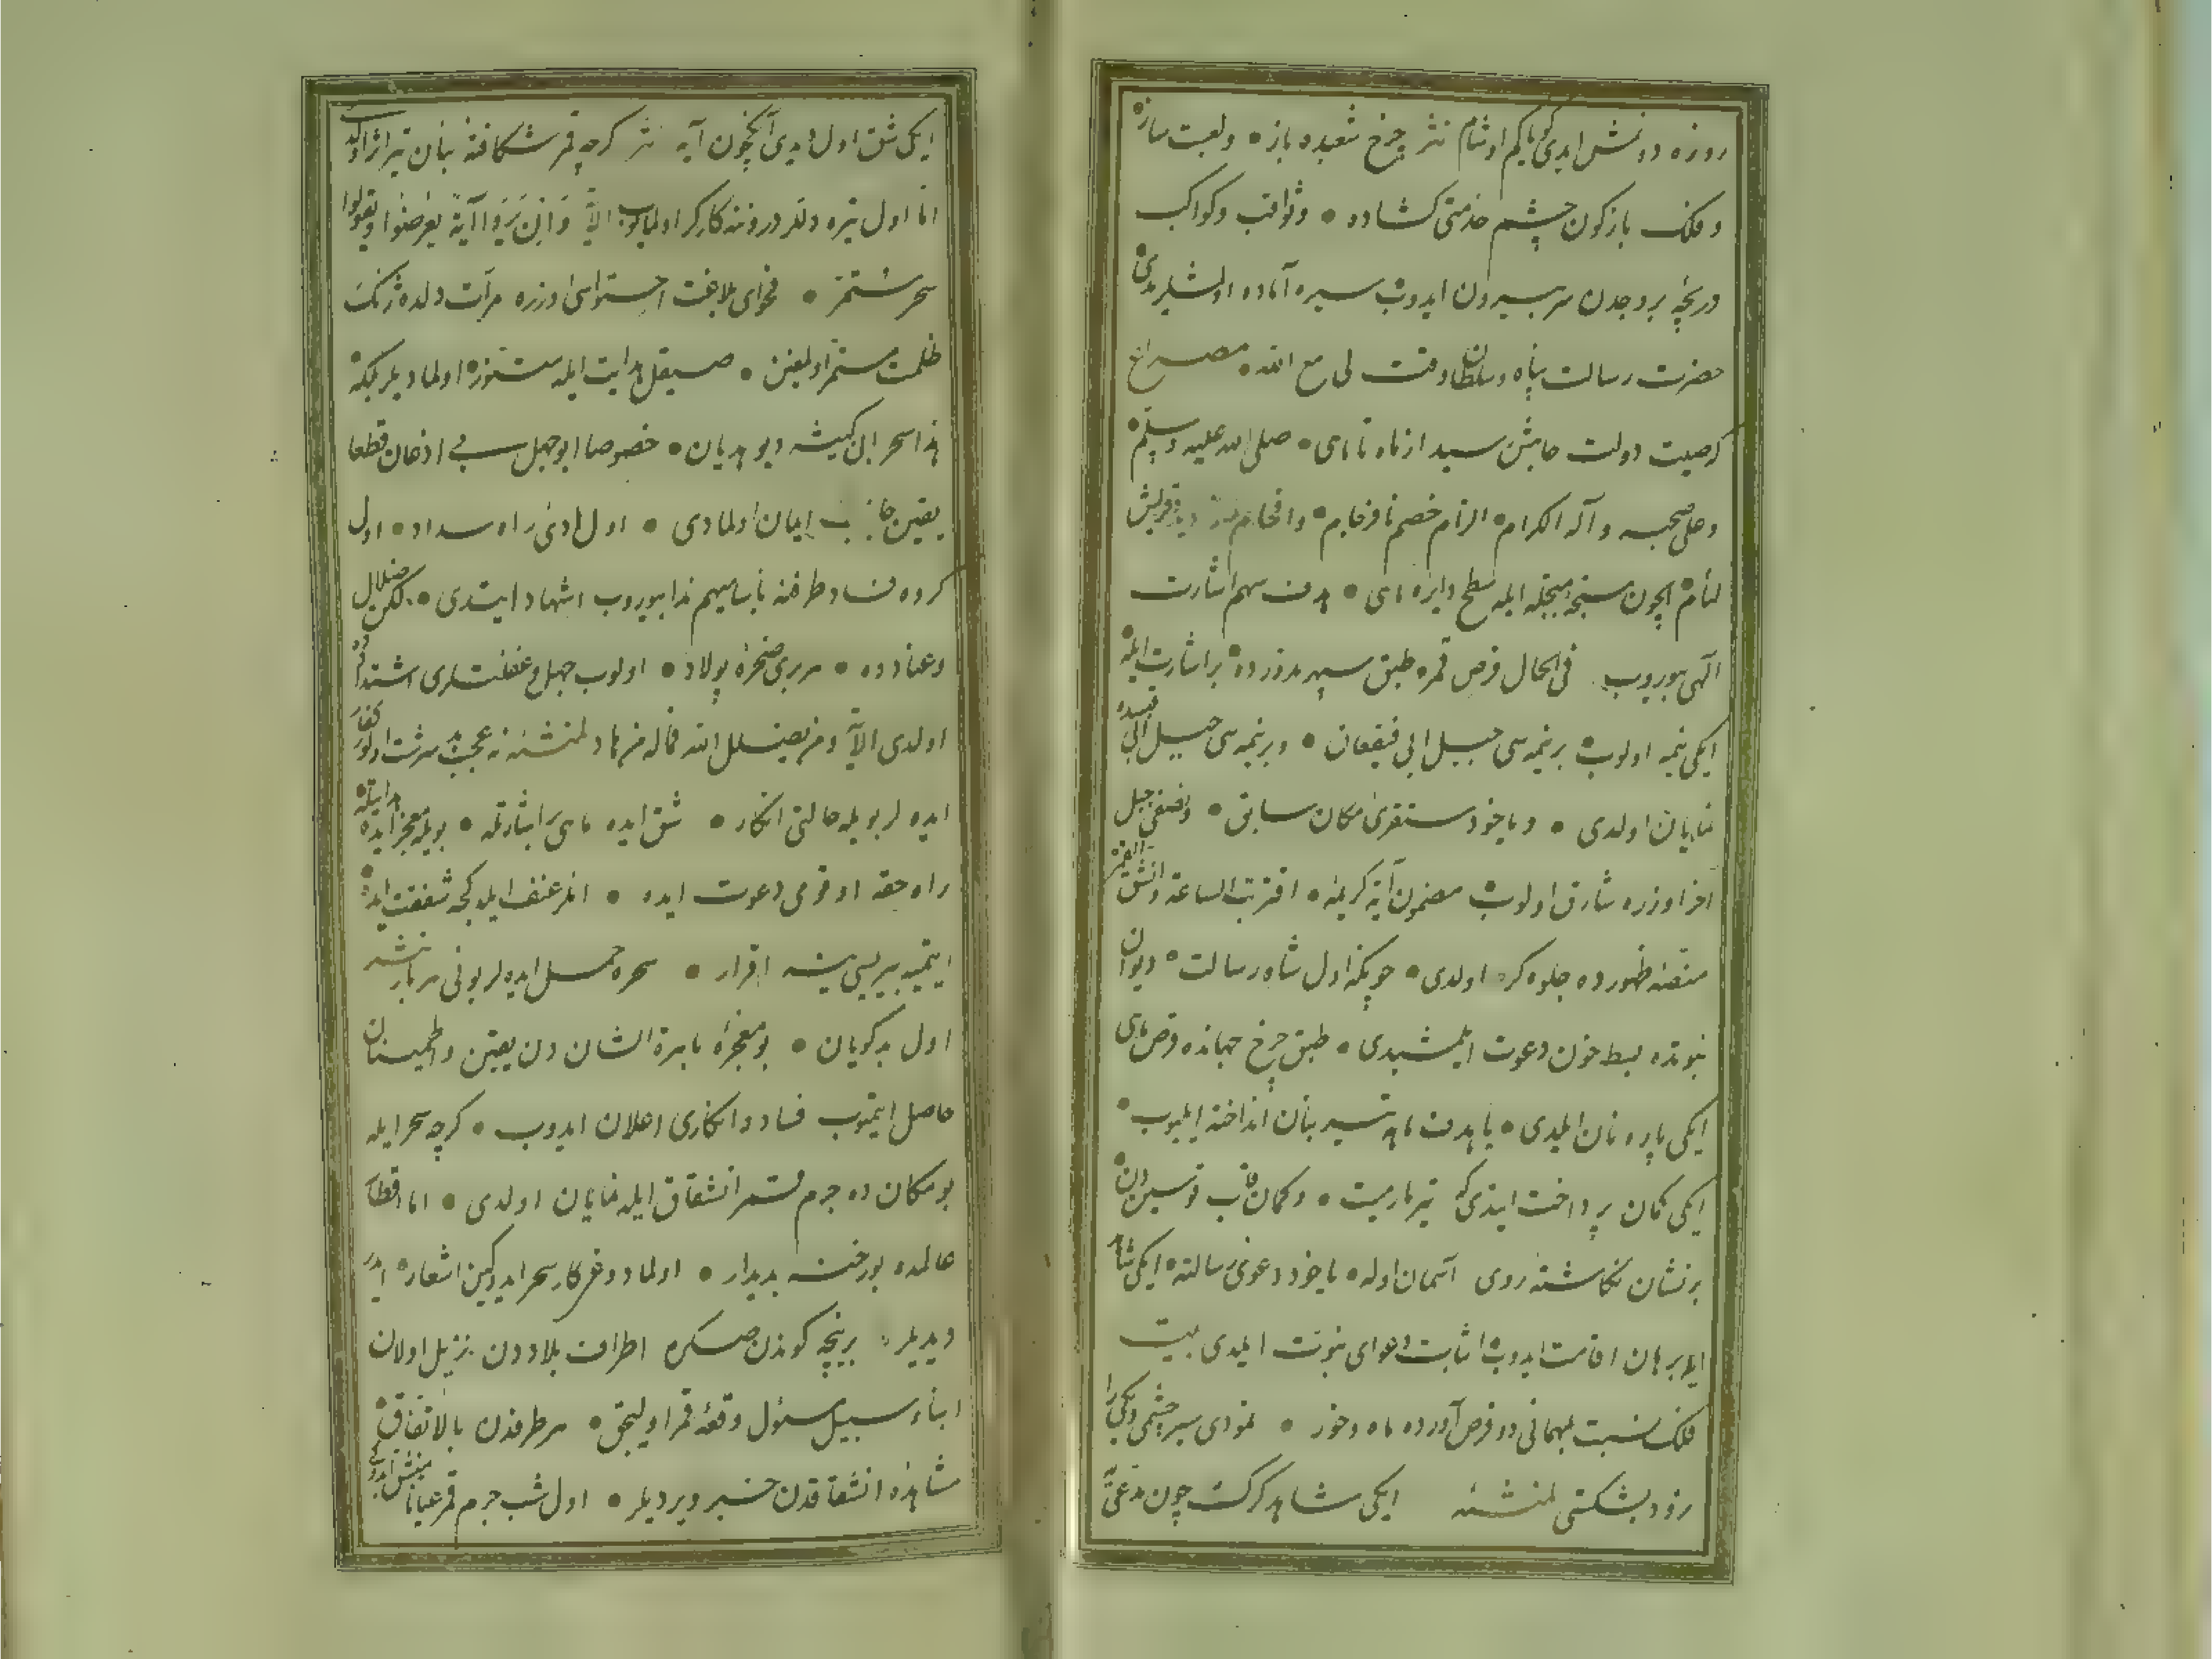 روزه دونمش ایدی کویاکیم اوشام نثر چرخ شعبده باز و لعبت ساز
و فلک بازکون چشم خدمتی کشاده و ثواقب و کواکب
دریچه بروجدن سر بیرون ایدوب سیره آماده اولمشلردی
حضرت رسالت پناه و سلطان وقت لی مع الله مصراع
که صیت دولت جاهش رسید از ماه تا ماهی صلی الله علیه وسلم
وعلی صحبه وآله الکرام الزام خصم نافرجام وافحام قریش
لئام ایچون سبحه ایله سطح دایره ماهی هدف سهم اشارت
الهی بیوروب فی الحال قرص قمر طبق سپهر مدورده بر اشارت ایله
ایکی نیمه اولوب بر نیمه سی جبل ابی قیقعان و بر نیمه سی جبل ابی قبیس ده
نمایان اولدی و یاخود مستقری مکان سابق و نصفی جبل
اخر اوزره شارق اولوب مضمون آیه کریمه اقتربت الساعة وانشق القمر
منصه ظهورده جلوه کر اولدی چونکه اول شاه رسالت دیوان
نبوتده بسط خوان دعوت ایلمشیدی طبق چرخ جهانده قرص ماهی
ایکی پاره نان ایلدی یا هدف ماهه تیر بنان انداخته ایلیوب
ایکی کمان پرداخت ایتدی که تیر مارمیت و کمان قاب قوسیندن
بر نشان نکاشته روی آسمان اوله یاخود دعوی رسالته ایکی شاهد
ایله برهان اقامت ایدوب اثبات دعوای نبوت ایلدی بیت
فلک نسبت بمهمانی دو قرص آورده ماه و خور نمودی سیر چشمی و یکی را
زود بشکستی لمنشئه ایکی شاهد کرکت چون مدعی
ایکی شق اول ایدی آنکچون آیه نثر کرچه قمر شکافته بنان تیر اثر اولدی
اما اول تیره دللر درونته کارکر اولمایوب الآیة وان یروا آیة یعرضوا ویقولوا
سحر مستمر فحوای بلاغت احتواسی اوزره مرآت دلده ژنک
ظلمت مستمر اولمغین صیقل هدایت ایله ستوزه اولمادیلر بلکه
هذا سحر ابن کبشه دیو هدیان خصوصا ابو جهل بی اذعان قطعا
یقین جانب ایمان اولمادی اول هادی راه سداد اول
کروه فساد طرفنه باسامیهم ندا بیوروب اشهاد ایتدی لکن ضلال
وعنادده هر بری صخره پولاد اولوب جهل و غفلتلری اشتداده
اولدی الآیة ومن یضلل الله فماله من هاد لمنشئه نه عجب بد سرشت اولور کفار
ایده لر بویله حالتی انکار شق ایده ماهی بر اشارتله بویله معجز ایده هدایتله
راه حقه او قومی دعوت ایده انلر عنف ایلیه کجه شفقت ایده
ایتمیه بیریسی ینه اقرار سحره حمل ایده لر بونی هر بار نثر
اول بدکویان بو معجزه باهرة الشان دن یقین و اطمینان
حاصل ایتمیوب فساد و انکاری اعلان ایدوب کرچه سحر ایله
بو مکان ده جرم قمر انشقاق ایله نمایان اولدی اما اقطار
عالمده بو رخنه بدیدار اولمادوغی کار سحر ایدوکین اشعار ایدر
دیدیلر بر نیچه کوندن صکره اطراف بلاددن نزیل اولان
ابناء سبیل سئول وقعه قمر اولیجق هر طرفدن بالاتفاق
مشاهده انشقاقدن خبر ویردیلر اول شب جرم قمر عیانا منشق ایدوکی